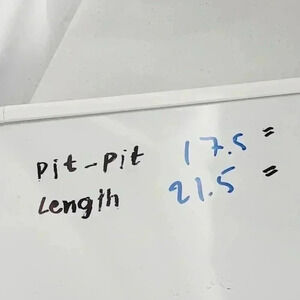 Pit-Pit 17.5"
Length 21.5"